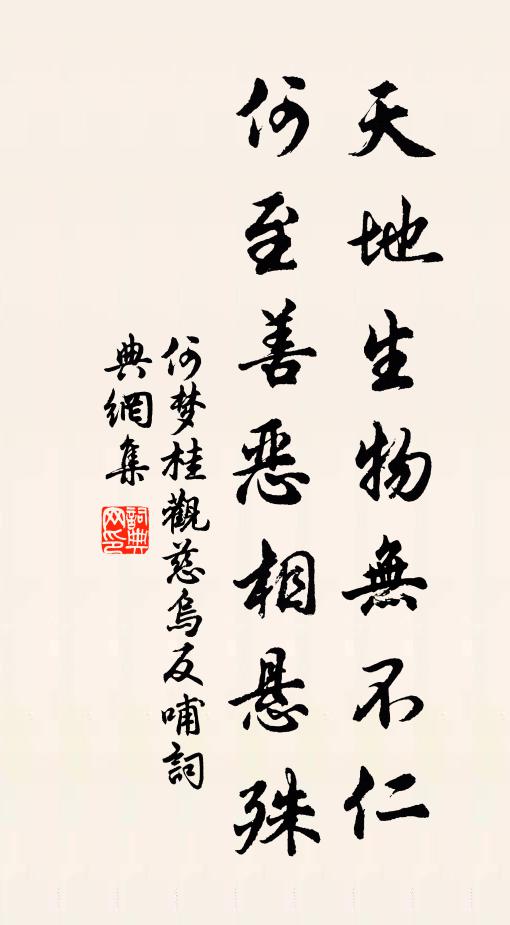 天地生物無不仁
何至善惡相悬殊
何梦桂觀慈烏反哺詞
典網集
詞典网印